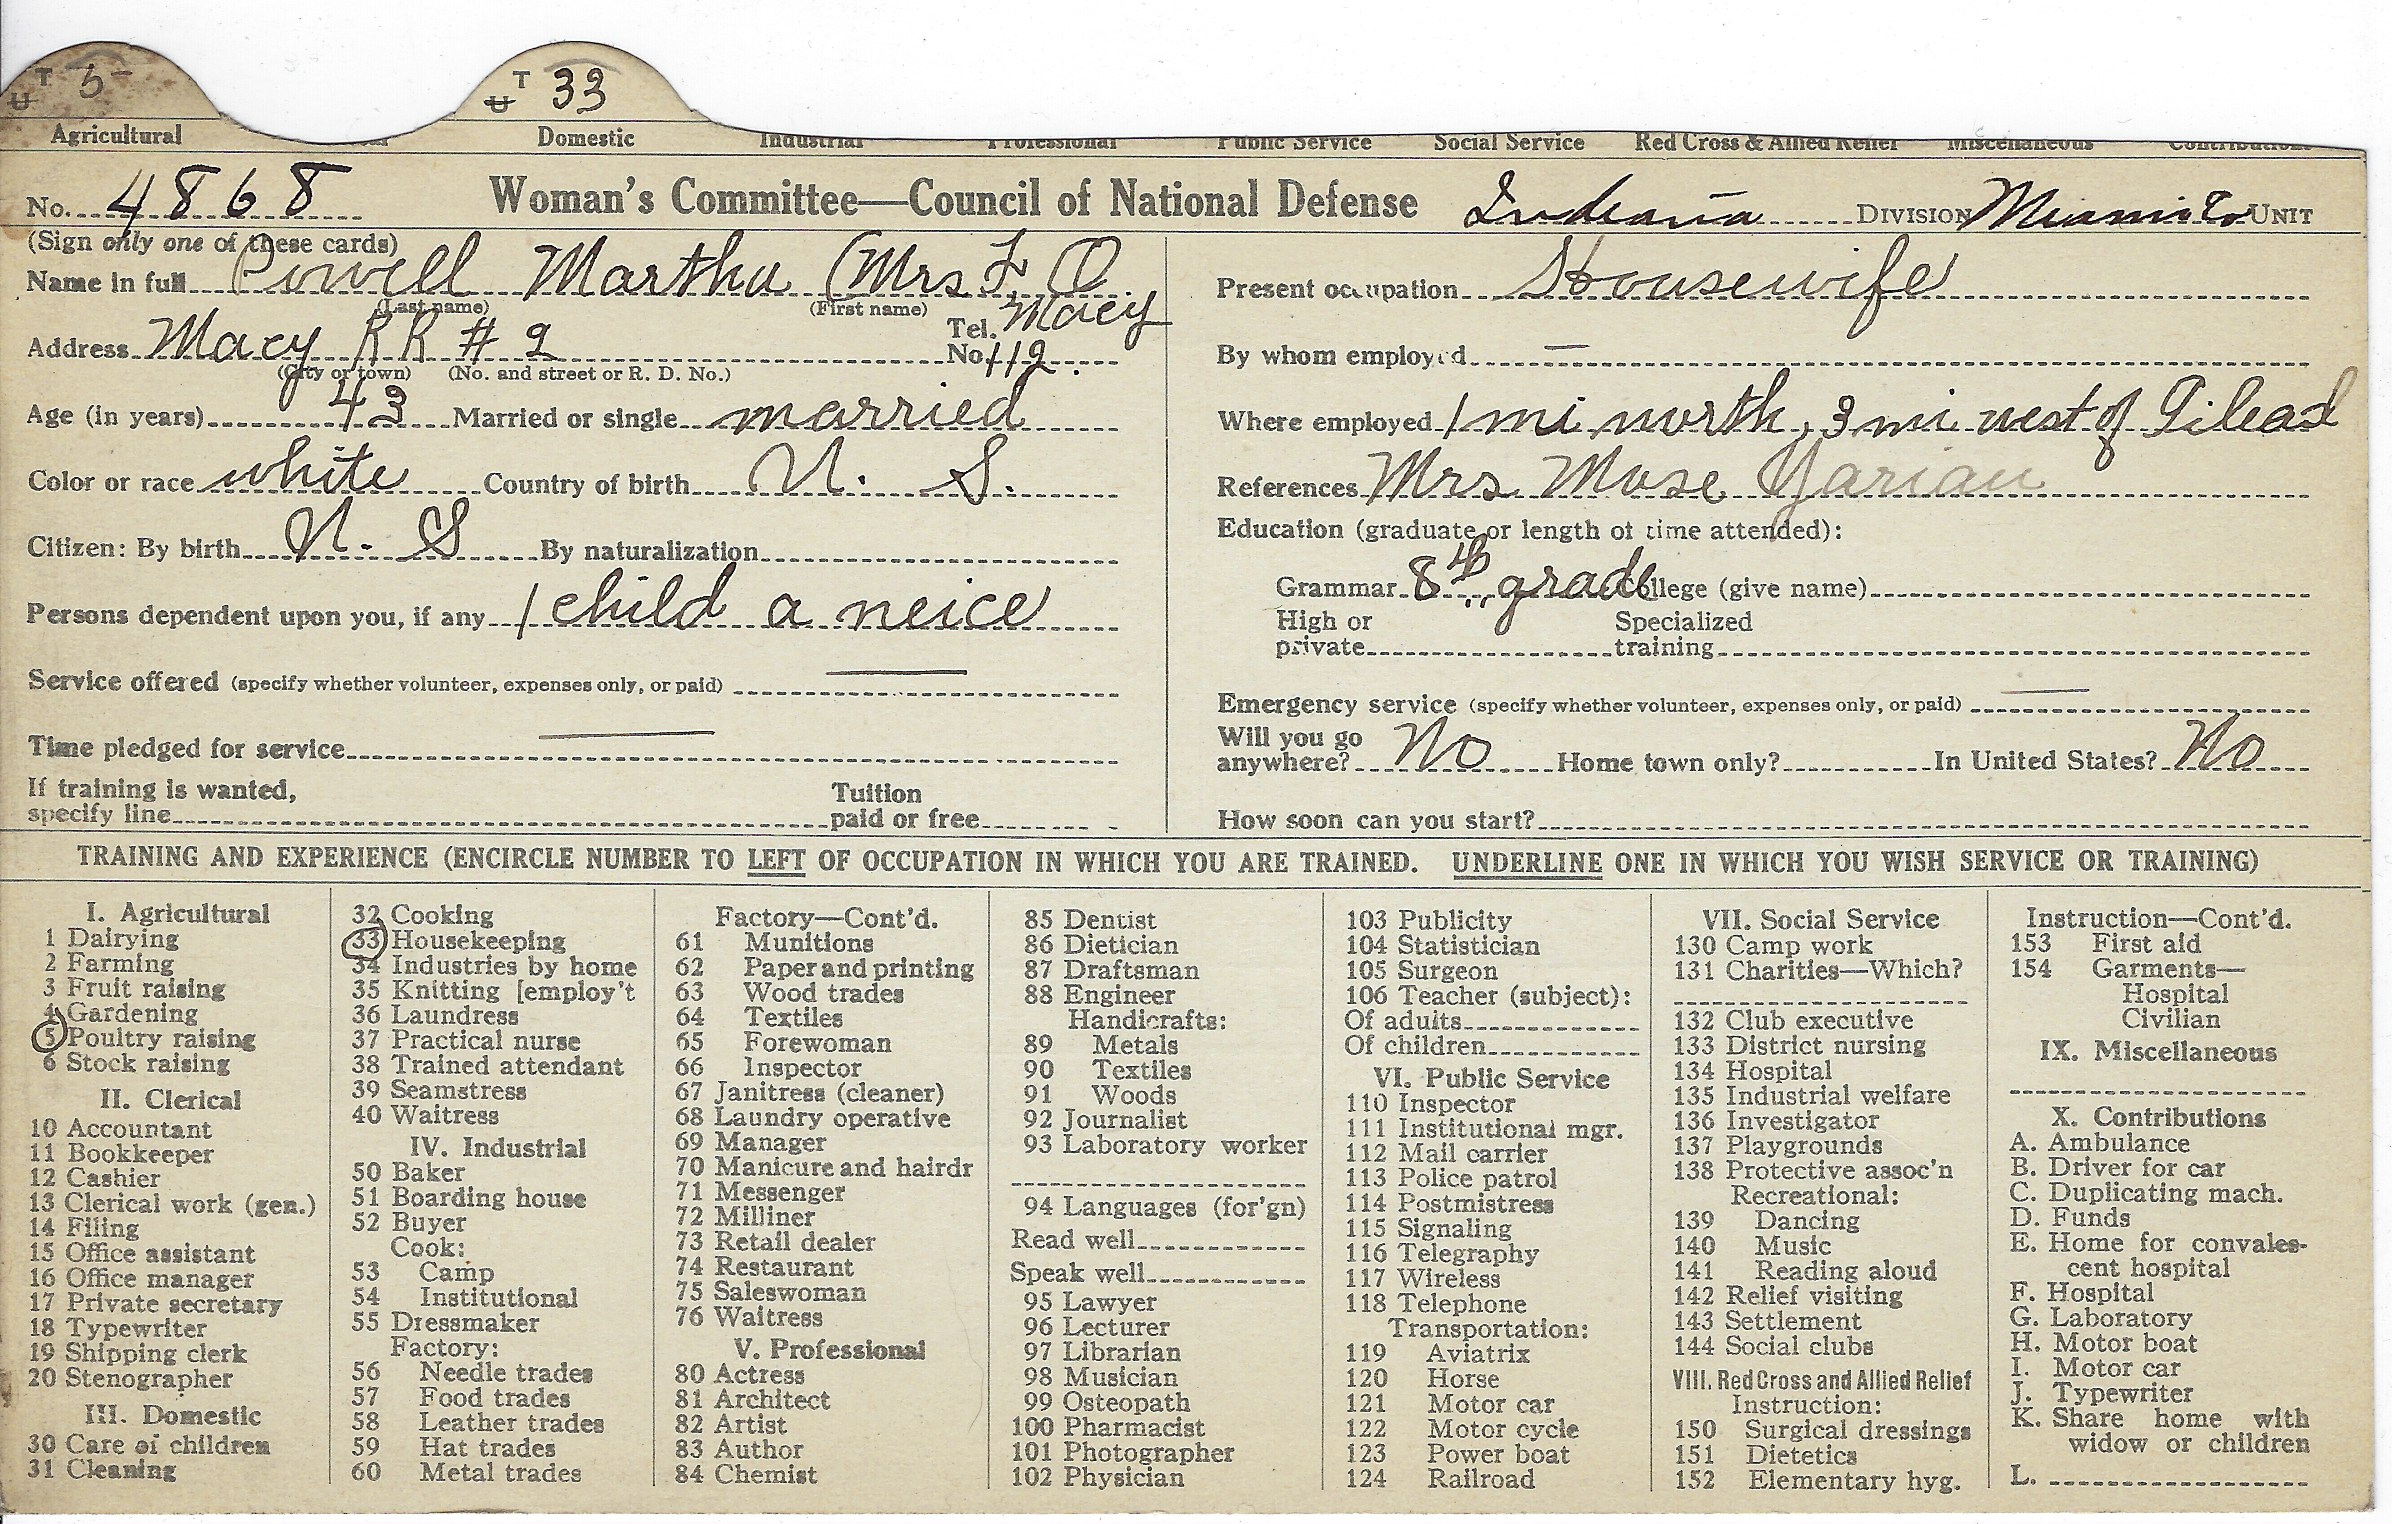 T 5 T 33
U U
Agricultural Domestic Industrial Professional Public Service Social Service Red Cross & Allied Relief Miscellaneous Contributions
No. 4868 Woman's Committee—Council of National Defense Indiana DIVISION Miami Co UNIT
(Sign only one of these cards)
Name in full Powell Martha (Mrs F. O.
(Last name) (First name)
Address Macy RR # 2 Tel. No. Macy 112
(City or town) (No. and street or R. D. No.)
Age (in years) 43 Married or single married
Color or race white Country of birth U. S.
Citizen: By birth U. S By naturalization
Persons dependent upon you, if any 1 child a neice
Service offered (specify whether volunteer, expenses only, or paid) —
Time pledged for service —
If training is wanted,
specify line Tuition paid or free
Present occupation Housewife
By whom employed —
Where employed 1 mi north, 3 mi west of Gilead
References Mrs Mose Yarian
Education (graduate or length of time attended):
Grammar 8th grade College (give name)
High or private Specialized training
Emergency service (specify whether volunteer, expenses only, or paid) —
Will you go anywhere? No Home town only? In United States? No
How soon can you start?
TRAINING AND EXPERIENCE (ENCIRCLE NUMBER TO LEFT OF OCCUPATION IN WHICH YOU ARE TRAINED. UNDERLINE ONE IN WHICH YOU WISH SERVICE OR TRAINING)
I. Agricultural
1 Dairying
2 Farming
3 Fruit raising
4 Gardening
5 Poultry raising
6 Stock raising
II. Clerical
10 Accountant
11 Bookkeeper
12 Cashier
13 Clerical work (gen.)
14 Filing
15 Office assistant
16 Office manager
17 Private secretary
18 Typewriter
19 Shipping clerk
20 Stenographer
III. Domestic
30 Care of children
31 Cleaning
32 Cooking
33 Housekeeping
34 Industries by home
35 Knitting [employ't
36 Laundress
37 Practical nurse
38 Trained attendant
39 Seamstress
40 Waitress
IV. Industrial
50 Baker
51 Boarding house
52 Buyer
Cook:
53 Camp
54 Institutional
55 Dressmaker
Factory:
56 Needle trades
57 Food trades
58 Leather trades
59 Hat trades
60 Metal trades
Factory—Cont'd.
61 Munitions
62 Paper and printing
63 Wood trades
64 Textiles
65 Forewoman
66 Inspector
67 Janitress (cleaner)
68 Laundry operative
69 Manager
70 Manicure and hairdr
71 Messenger
72 Milliner
73 Retail dealer
74 Restaurant
75 Saleswoman
76 Waitress
V. Professional
80 Actress
81 Architect
82 Artist
83 Author
84 Chemist
85 Dentist
86 Dietician
87 Draftsman
88 Engineer
Handicrafts:
89 Metals
90 Textiles
91 Woods
92 Journalist
93 Laboratory worker
94 Languages (for'gn)
Read well
Speak well
95 Lawyer
96 Lecturer
97 Librarian
98 Musician
99 Osteopath
100 Pharmacist
101 Photographer
102 Physician
103 Publicity
104 Statistician
105 Surgeon
106 Teacher (subject):
Of adults
Of children
VI. Public Service
110 Inspector
111 Institutional mgr.
112 Mail carrier
113 Police patrol
114 Postmistress
115 Signaling
116 Telegraphy
117 Wireless
118 Telephone
Transportation:
119 Aviatrix
120 Horse
121 Motor car
122 Motor cycle
123 Power boat
124 Railroad
VII. Social Service
130 Camp work
131 Charities—Which?
132 Club executive
133 District nursing
134 Hospital
135 Industrial welfare
136 Investigator
137 Playgrounds
138 Protective assoc'n
Recreational:
139 Dancing
140 Music
141 Reading aloud
142 Relief visiting
143 Settlement
144 Social clubs
VIII. Red Cross and Allied Relief
Instruction:
150 Surgical dressings
151 Dietetics
152 Elementary hyg.
Instruction—Cont'd.
153 First aid
154 Garments—
Hospital
Civilian
IX. Miscellaneous
X. Contributions
A. Ambulance
B. Driver for car
C. Duplicating mach.
D. Funds
E. Home for convales-
cent hospital
F. Hospital
G. Laboratory
H. Motor boat
I. Motor car
J. Typewriter
K. Share home with
widow or children
L.